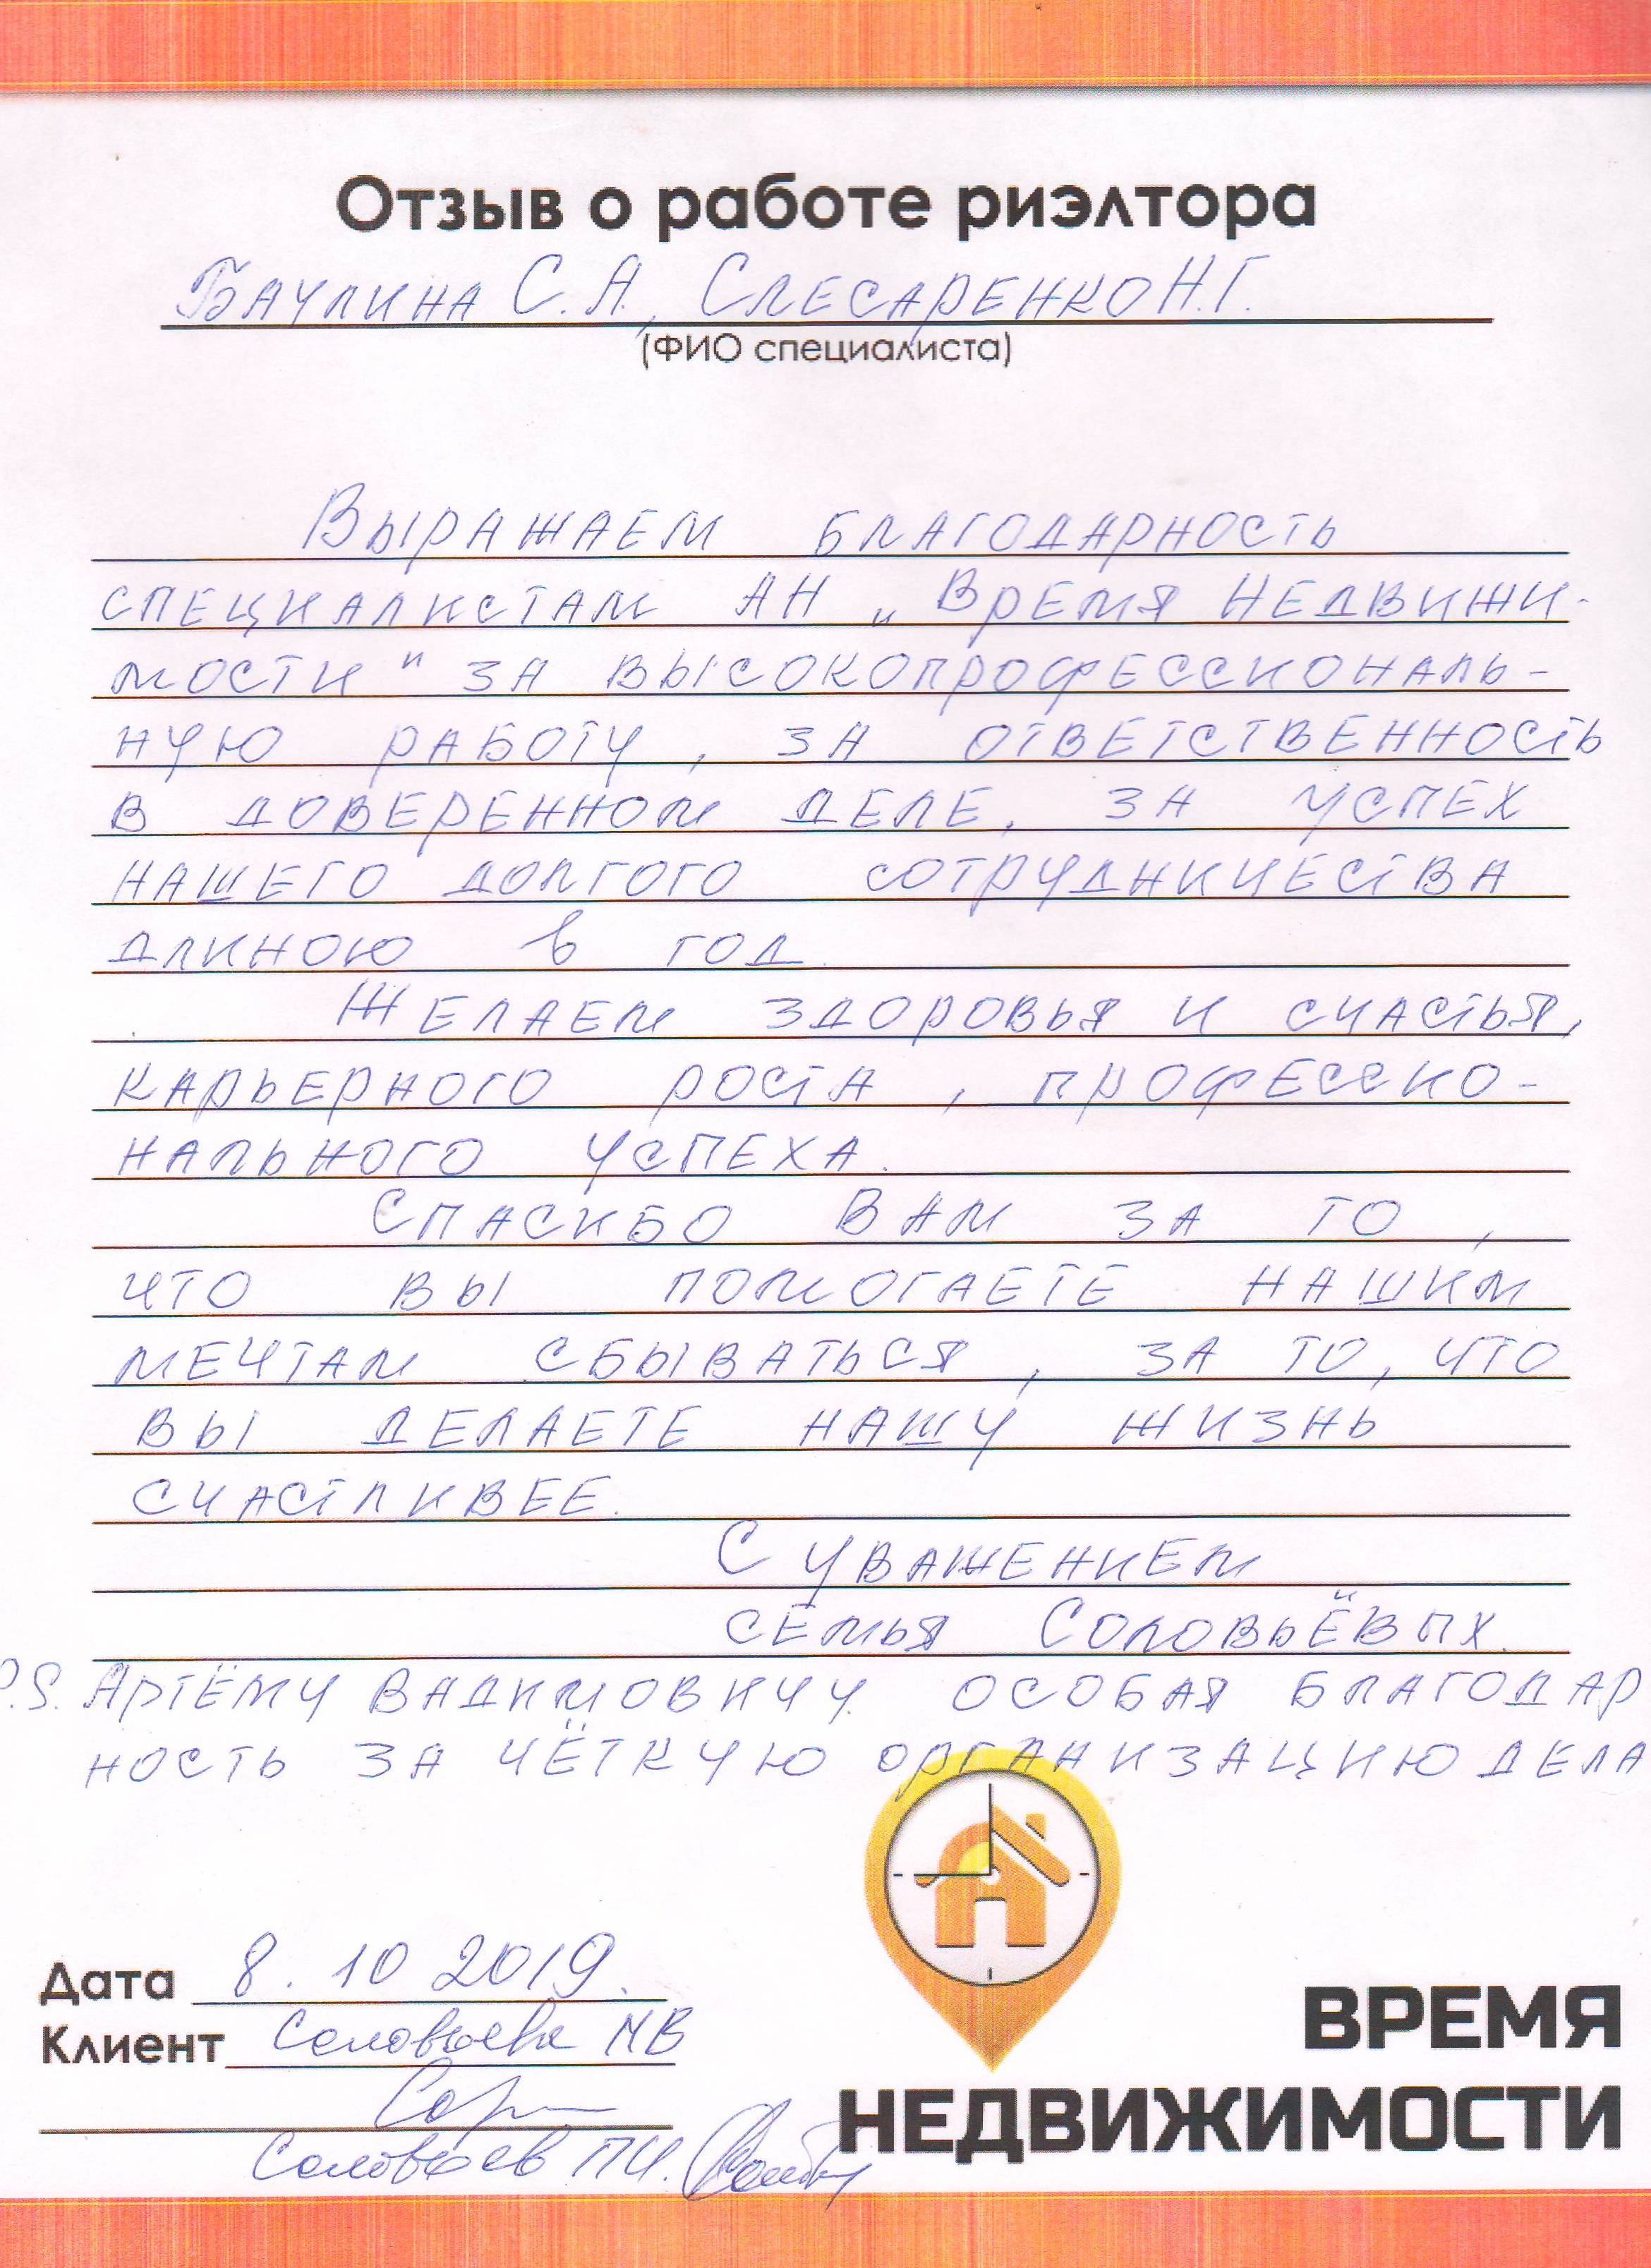 Отзыв о работе риэлтора
Баулина С.А., Слесаренко Н.Г.
(ФИО специалиста)
Выражаем благодарность
специалистам АН „Время Недвижи-
мости" за высокопрофессиональ-
ную работу, за ответственность
в доверенном деле, за успех
нашего долгого сотрудничества
длиною в год.
Желаем здоровья и счастья,
карьерного роста, профессио-
нального успеха.
Спасибо Вам за то,
что вы помогаете нашим
мечтам сбываться, за то, что
вы делаете нашу жизнь
счастливее.
С уважением
семья Соловьёвых.
P.S. Артёму Вадимовичу особая благодар
ность за чёткую организацию дела
Дата 8.10 2019.
Клиент Соловьева МВ
Соловьев П.И.
ВРЕМЯ
НЕДВИЖИМОСТИ